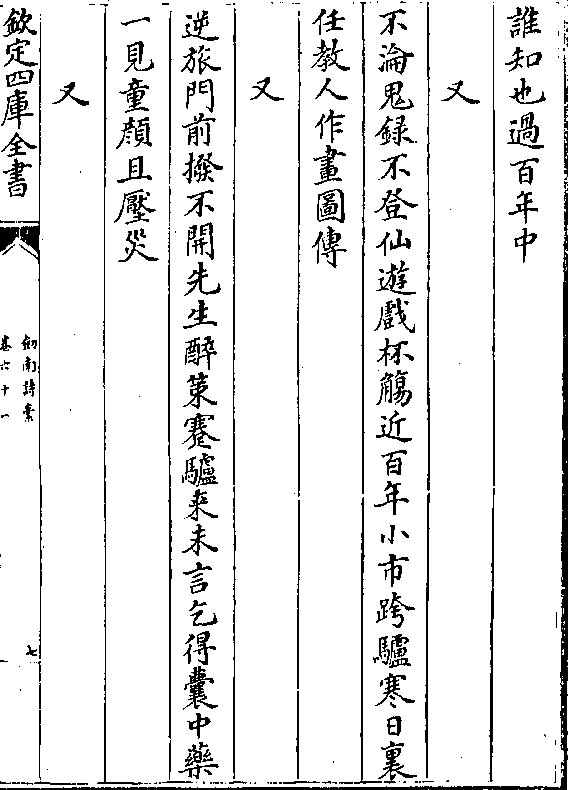 誰知也過百年中
又
不淪鬼録不登仙遊戲杯觴近百年小市跨驢寒日裏
任教人作畫圖傳
又
逆旅門前撥不開先生醉策蹇驢来未言乞得囊中藥
一見童顔且壓災
又
欽定四庫全書
劍南詩稾
卷六十一
七